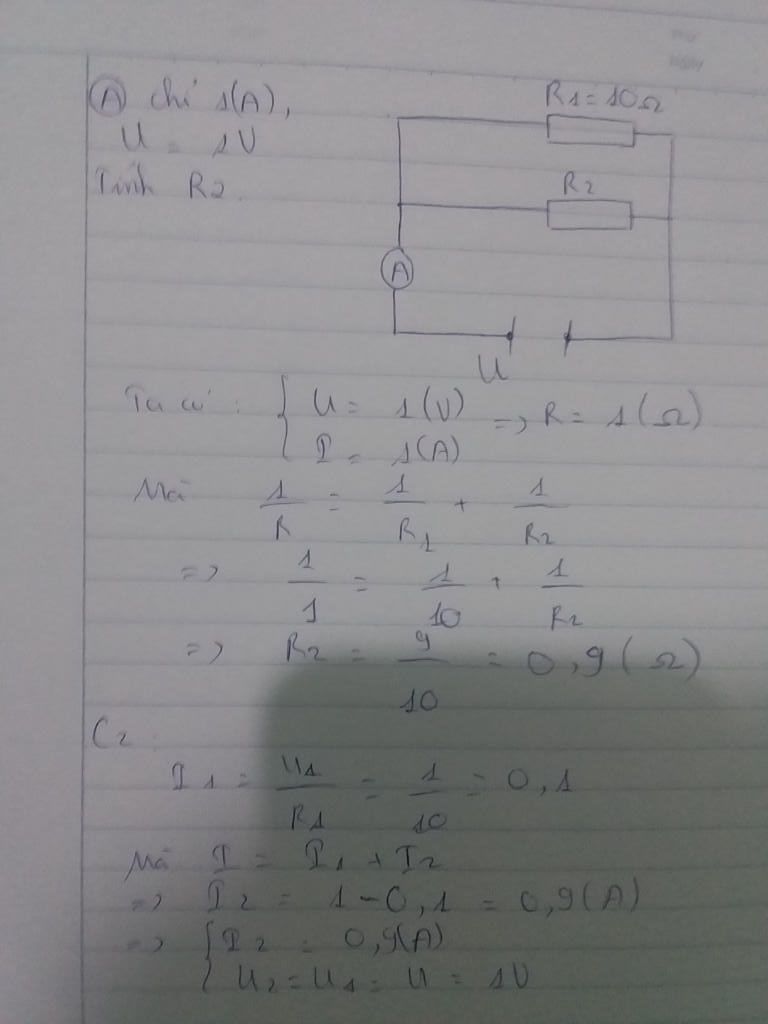 Ⓐ chỉ 1(A),
U = 1V
Tính R2.
R1 = 10Ω
R2
A
U
Ta có : { U = 1(V) => R = 1(Ω)
I = 1(A)
Mà 1/R = 1/R1 + 1/R2
=> 1/1 = 1/10 + 1/R2
=> R2 = 9/10 = 0,9(Ω)
C2:
I1 = U1/R1 = 1/10 = 0,1
Mà I = I1 + I2
=> I2 = 1-0,1 = 0,9(A)
=> { I2 = 0,9(A)
U2 = U1 = U = 1V